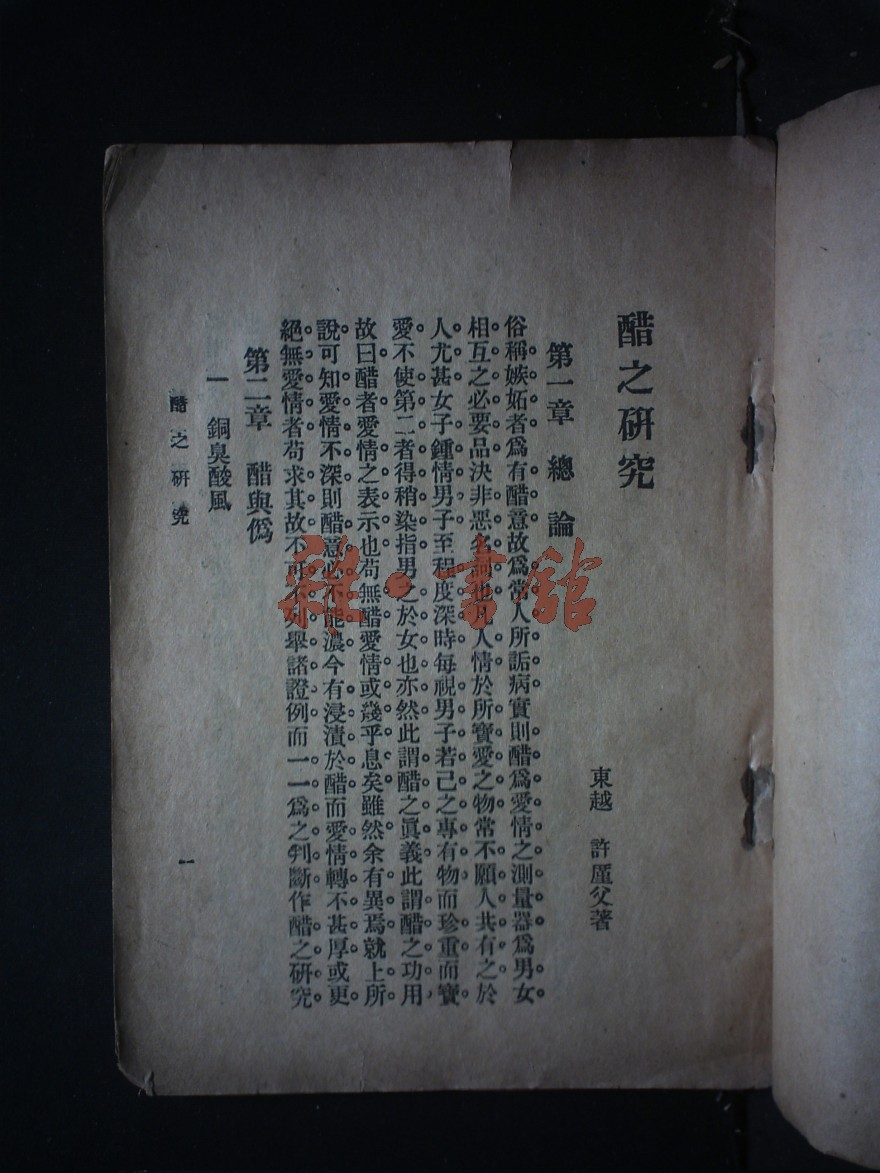 醋之研究
東越 許廑父著
第一章 總論
俗稱嫉妬者爲有醋意故爲常人所詬病實則醋爲愛情之測量器爲男女
相互之必要品決非惡名詞也凡人情於所寶愛之物常不願人共有之於
人尤甚女子鍾情男子至程度深時每視男子若己之專有物而珍重而寶
愛不使第二者得稍染指男之於女也亦然此謂醋之眞義此謂醋之功用
故曰醋者愛情之表示也苟無醋愛情或幾乎息矣雖然余有異焉就上所
說可知愛情不深則醋意必不能濃今有浸漬於醋而愛情轉不甚厚或更
絕無愛情者苟求其故不可不列舉諸證例而一一爲之判斷作醋之研究
第二章 醋與僞
一 銅臭酸風
醋之研究
一
雜·書館